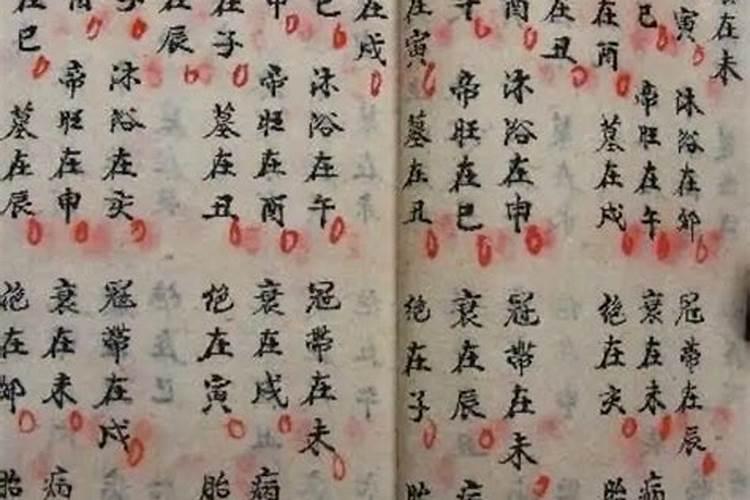 在未
寅
巳
在酉
在丑
酉
在寅
沐浴在卯
帝旺在午
墓在戌
沐浴在申
帝旺在巳
墓在丑
冠帶在辰
衰在未
绝在亥
冠帶在未
衰在辰
绝在子
病
胎
病
胎
在戌
巳
在子
在辰
在巳
沐浴在午
帝旺在酉
墓在丑
沐浴在亥
帝旺在申
墓在辰
冠帶在未
衰在戌
绝在寅
冠帶在戌
衰在未
绝在卯
病
胎
病
胎